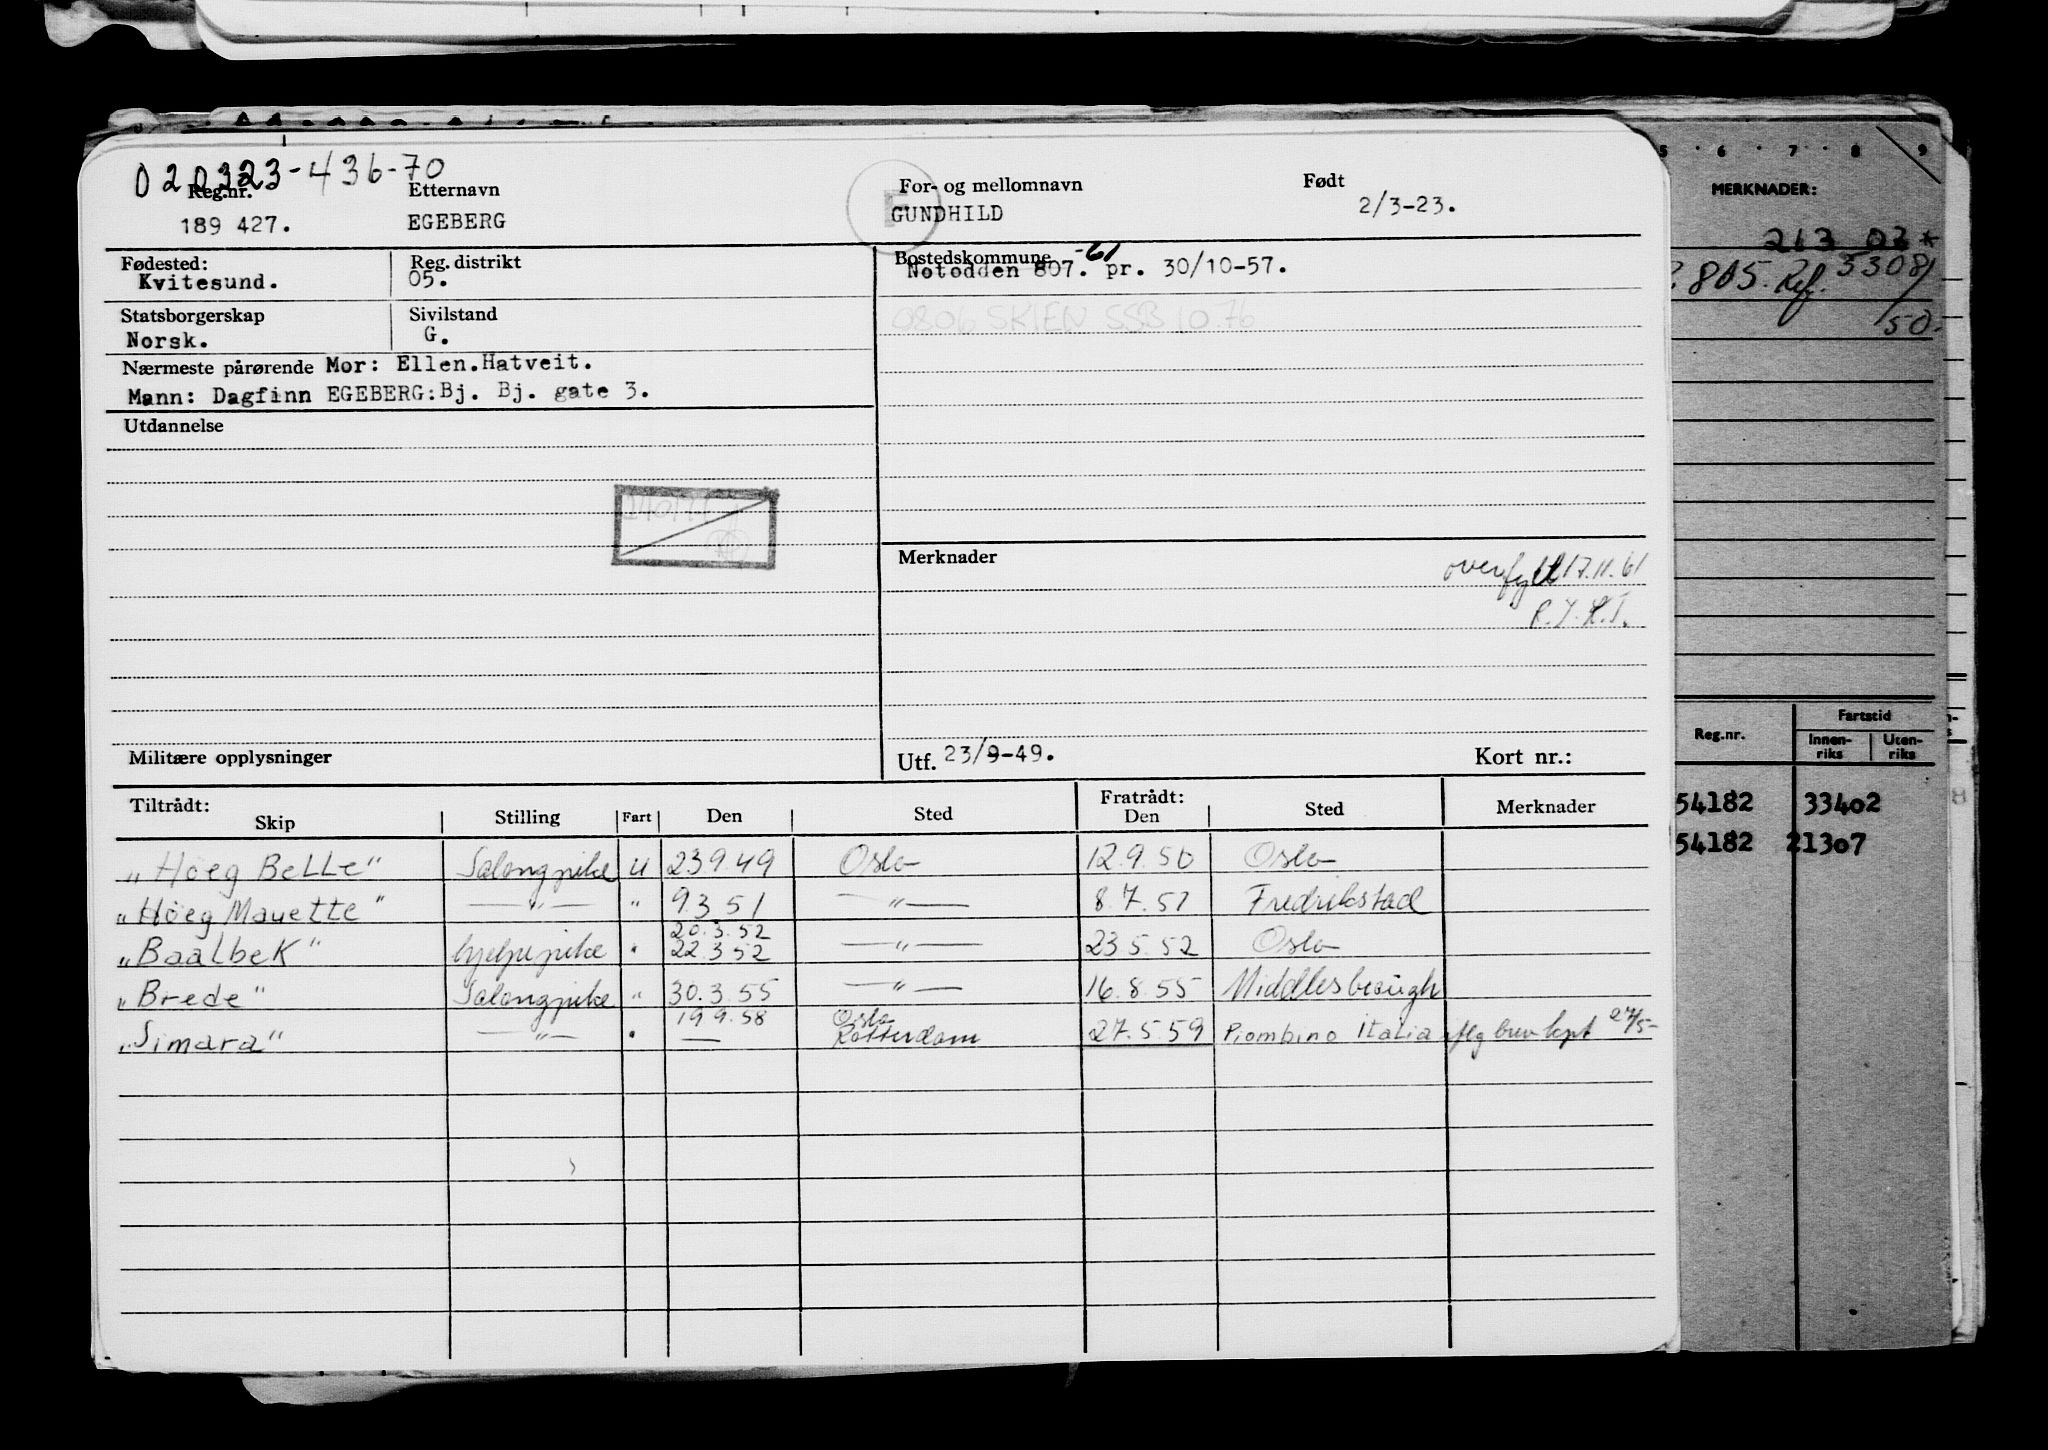 020323-436-70
Reg.nr. Etternavn For- og mellomnavn Født
189 427. EGEBERG GUNDHILD 2/3-23.
F
Fødested: Reg. distrikt Bostedskommune -61
Kvitesund. 05. Notodden 807. pr. 30/10-57.
0806 SKIEN SSB 10.76
Statsborgerskap Sivilstand
Norsk. G.
Nærmeste pårørende Mor: Ellen.Hatveit.
Mann: Dagfinn EGEBERG:Bj. Bj. gate 3.
Utdannelse
Merknader
overfylt 17.11.61
Militære opplysninger Utf. 23/9-49. Kort nr.:
Tiltrådt: Fratrådt:
Skip Stilling Fart Den Sted Den Sted Merknader
"Höeg Belle" Salongpike U 23 9 49 Oslo 12.9.50 Oslo
"Höeg Mauette" —"— " 9 3 51 —"— 8.7.51 Fredrikstad
20.3.52
"Baalbek" hjelpepike " 22.3 52 —"— 23.5.52 Oslo
"Brede" Salongpike " 30.3.55 —"— 16.8.55 Middlesbrough
19 9.58 Oslo
"Simara" —"— " — Rotterdam 27.5.59 Piombino Italia iflg brev kpt 27/5-
5 · 6 · 7 · 8 · 9
MERKNADER:
213 03*
805. Ref. 33081
/50.
Reg.nr. Fartstid
Innen-riks Uten-riks
54182 33402
54182 21307